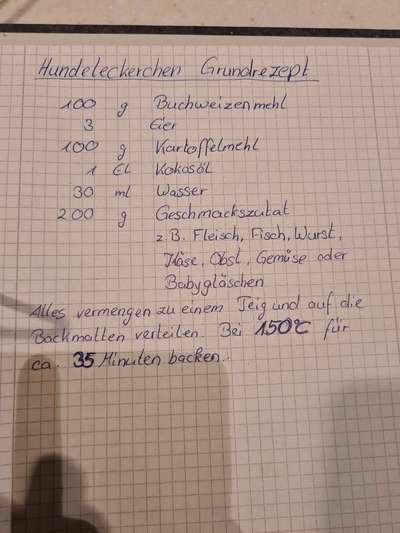 Hundeleckerchen Grundrezept
100 g Buchweizenmehl
3 Eier
100 g Kartoffelmehl
1 El Kokosöl
30 ml Wasser
200 g Geschmackszutat
z.B. Fleisch, Fisch, Wurst,
Käse, Obst, Gemüse oder
Babygläschen
Alles vermengen zu einem Teig und auf die
Backmatten verteilen. Bei 150°C für
ca. 35 Minuten backen.